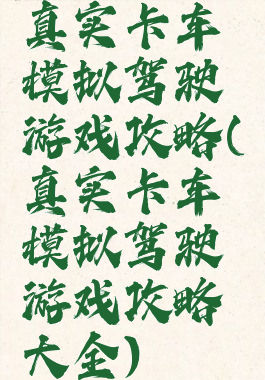 真实卡车
模拟驾驶
游戏攻略(
真实卡车
模拟驾驶
游戏攻略
大全)